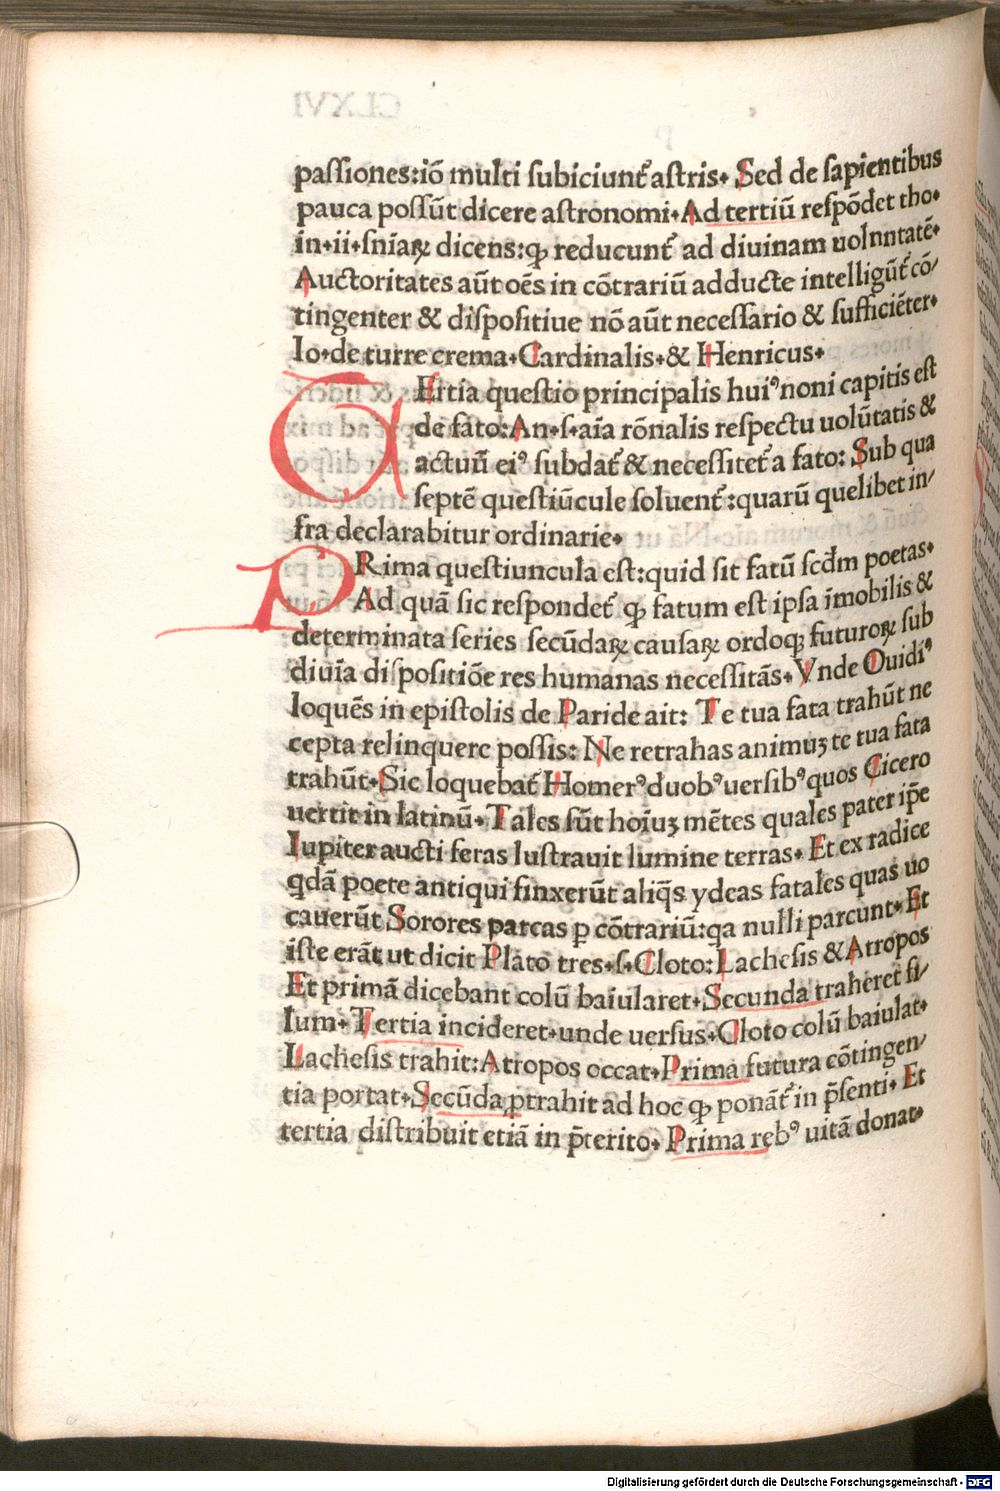 paſſiones:iō multi ſubiciunt᷑ aſtris. Sed de ſapientibus
pauca poſſūt dicere aſtronomi. Ad tertiū reſpōdet tho.
in.ii.ſniaꝝ dicens:ꝙ reducunt᷑ ad diuinam uolnntatē.
Auctoritates aūt oēs in cōtrariū adducte intelligūt᷑ cō/
tingenter & diſpoſitiue nō aūt neceſſario & ſufficiēter.
Io.de turre crema.Cardinalis.& Henricus.
TErtia queſtio principalis huiꝰ noni capitis eſt
de fato:An.ſ.aīa rōnalis reſpectu uolūtatis &
actuū eiꝰ ſubdat᷑ & neceſſitet᷑ a fato: Sub qua
ſeptē queſtiūcule ſoluent᷑:quarū quelibet in/
fra declarabitur ordinarie.
PRima queſtiuncula eſt:quid ſit fatū ſcd̄m poetas.
Ad quā ſic reſpondet᷑ ꝙ fatum eſt ipſa īmobilis &
determinata ſeries ſecūdaꝝ cauſaꝝ ordoqꝫ futuroꝝ ſub
diuīa diſpoſitiōe res humanas neceſſitās. Vnde Ouidiꝰ
loquēs in epiſtolis de Paride ait: Te tua fata trahūt ne
cepta relinquere poſſis: Ne retrahas animuꝫ te tua fata
trahūt. Sic loquebat᷑ Homerꝰ duobꝰ uerſibꝰ quos Cicero
uertit in latinū. Tales ſūt hoiuꝫ mētes quales pater ip̄e
Iupiter aucti feras luſtrauit lumine terras. Et ex radice
qdā poete antiqui finxerūt aliq̄s ydeas fatales quas uo
cauerūt Sorores parcas ꝑ cōtrariū:qa nulli parcunt. Et
iſte erāt ut dicit Plato tres.ſ.Cloto:Lacheſis & Atropos
Et primā dicebant colū baiularet. Secunda traheret fi/
lum. Tertia incideret.unde uerſus.Cloto colū baiulat.
Lacheſis trahit:Atropos occat.Prima futura cōtingen/
tia portat.Secūda ꝓtrahit ad hoc ꝙ ponāt᷑ in p̄ſenti. Et
tertia diſtribuit etiā in p̄terito. Prima rebꝰ uitā donat.
Digitalisierung gefördert durch die Deutsche Forschungsgemeinschaft - DFG